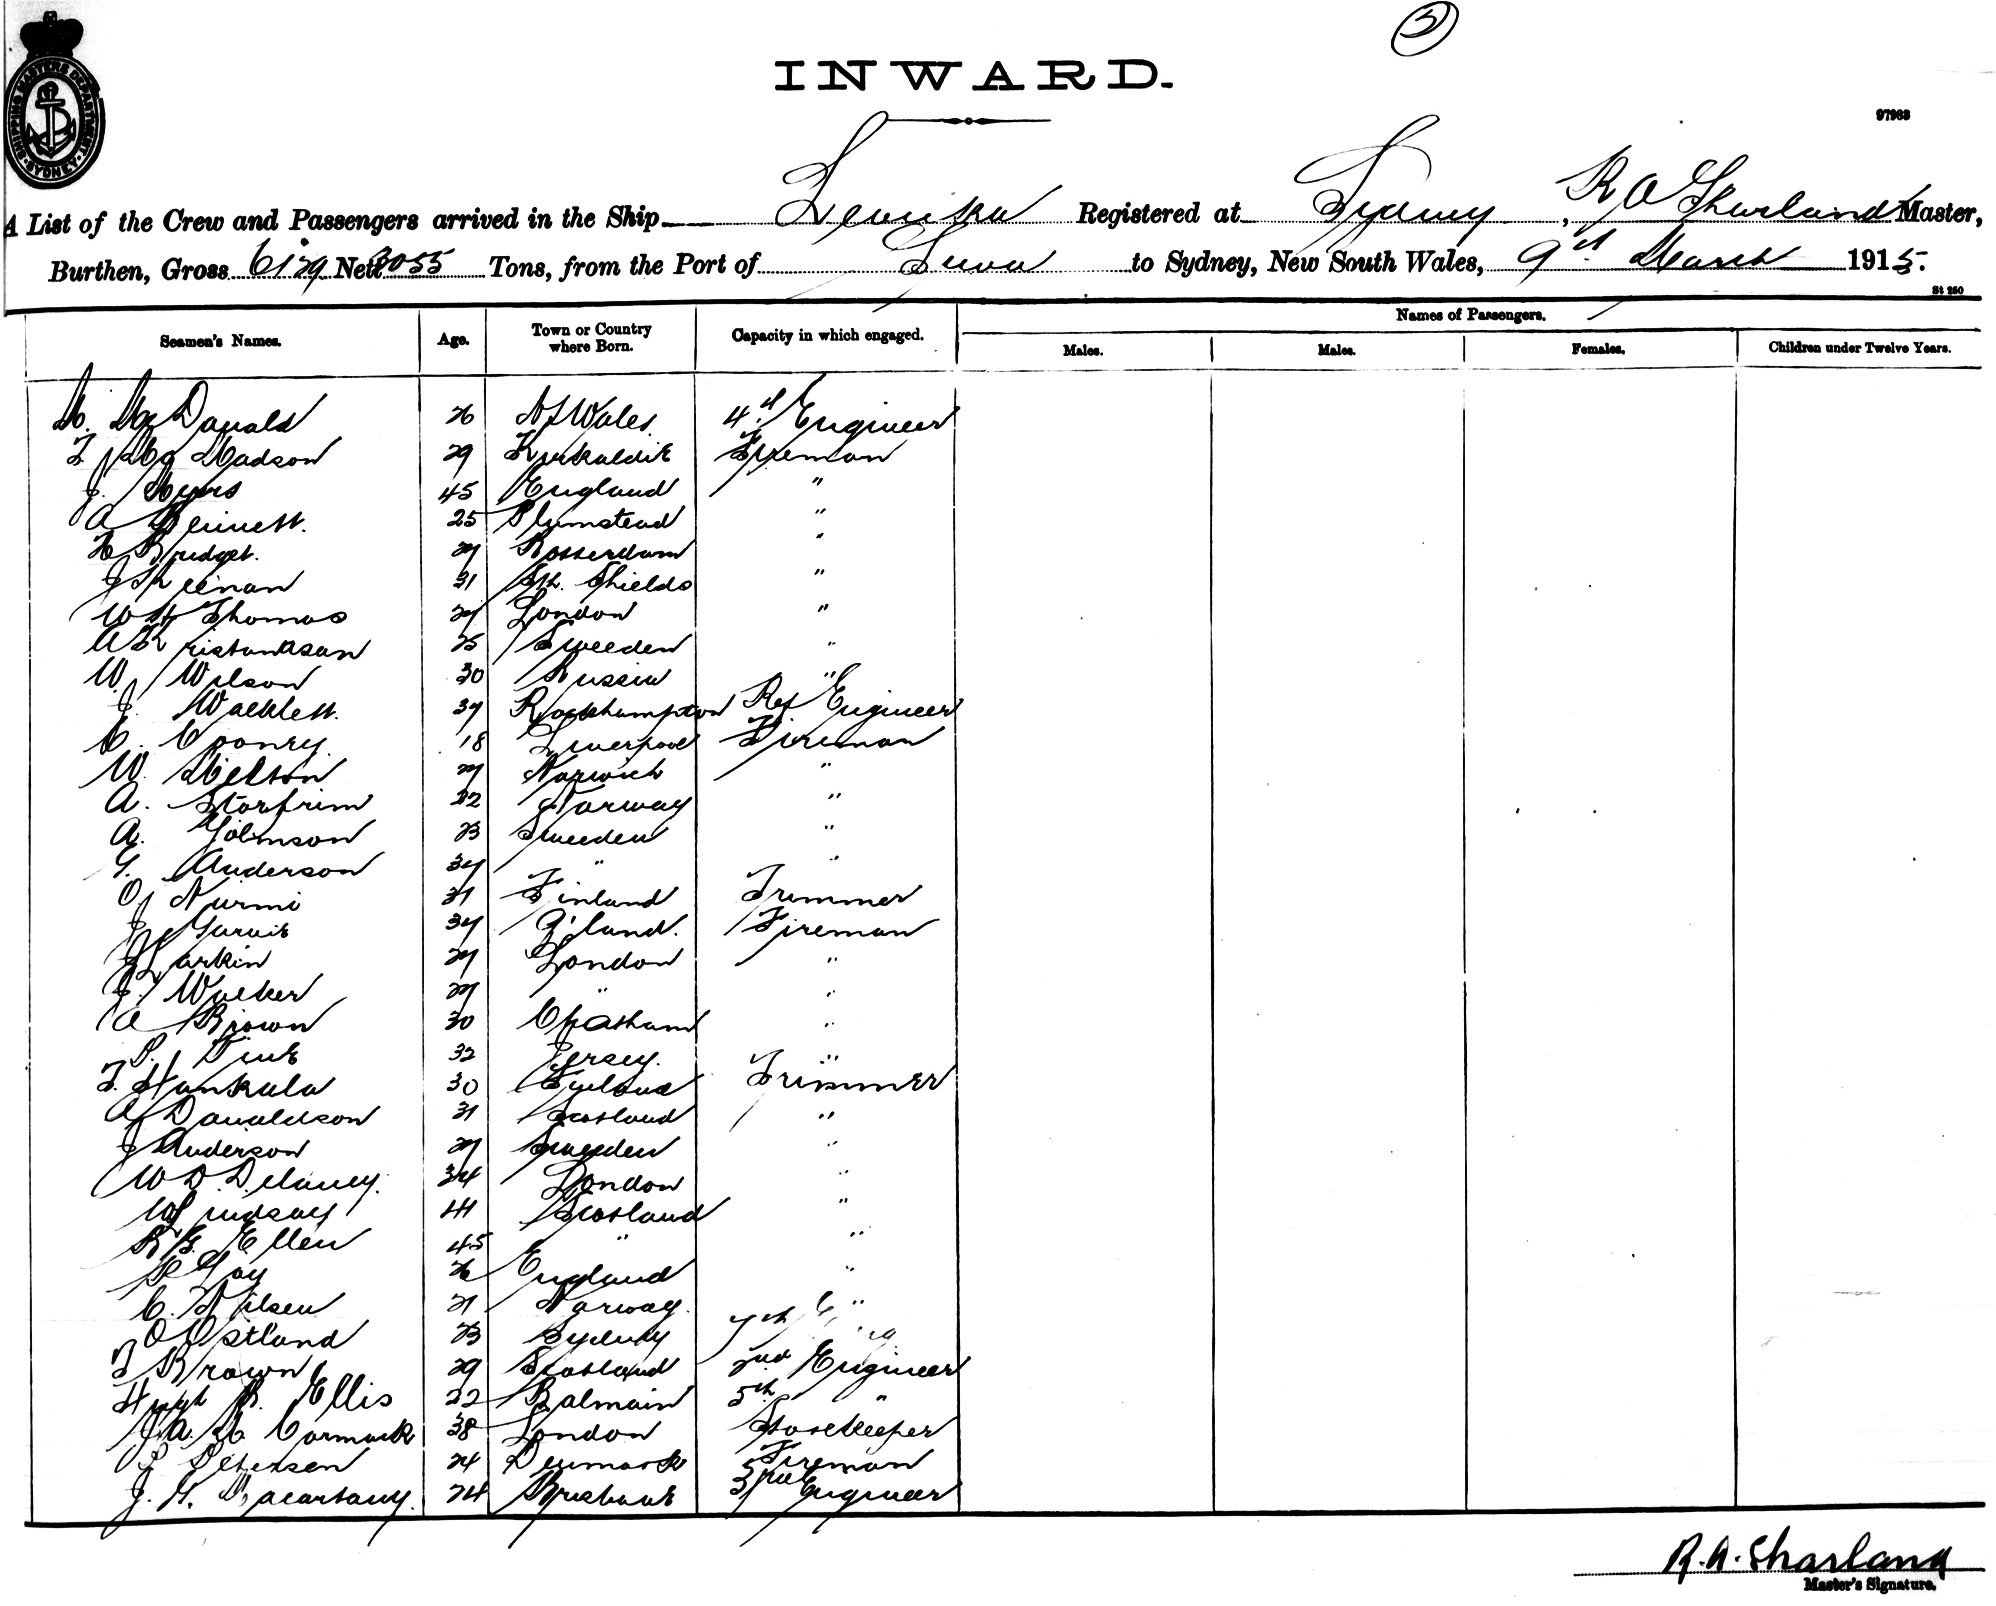 3
INWARD.
97963
SHIPPING MASTERS DEPARTMENT. SYDNEY
A List of the Crew and Passengers arrived in the Ship Levuka Registered at Sydney, R A Sharland Master,
Burthen, Gross 6129 Nett 3055 Tons, from the Port of Suva to Sydney, New South Wales, 9th March 1915.
St 250
Seamen's Names. Age. Town or Country where Born. Capacity in which engaged. Names of Passengers.
Males. Males. Females. Children under Twelve Years.
M. McDonald 26 N S Wales. 4th Engineer
29 Kirkaldie Fireman
J. Myers 45 England "
A Bennett. 25 Plumstead "
H Bridget. 27 Rotterdam "
31 Sth. Shields "
W H Thomas 27 London "
A 25 Sweeden "
W. Wilson 30 Russia "
J. 37 Rockhampton Ref Engineer
C. Cooney 18 Liverpool Fireman
W. 27 Norwich "
A. Storfrim 22 Norway "
A. Johnson 23 Sweeden "
G. Anderson 34 " "
O Nurmi 31 Finland Trimmer
J 34 Fireman
J Larkin 27 London "
J. Walker 27 " "
A Brown 30 Chatham "
32 Jersey. "
F. Hankala 30 Trimmer
A Donaldson 31 Scotland "
J Anderson 27 Sweeden "
W D Delaney. 34 London "
W Lindsay Scotland "
R G. Ellen 45 " "
26 England "
C. Nilsen 21 Norway. "
O Ostland 23 Sydney 7th
F Brown 29 Scotland 2nd Engineer
Hugh R. Ellis 22 Balmain 5th "
J. A. McCormack 38 London Storekeeper
P Petersen 24 Denmark Fireman
J. G. 24 Brisbane 3rd Engineer
R. A. Sharland
Master's Signature.